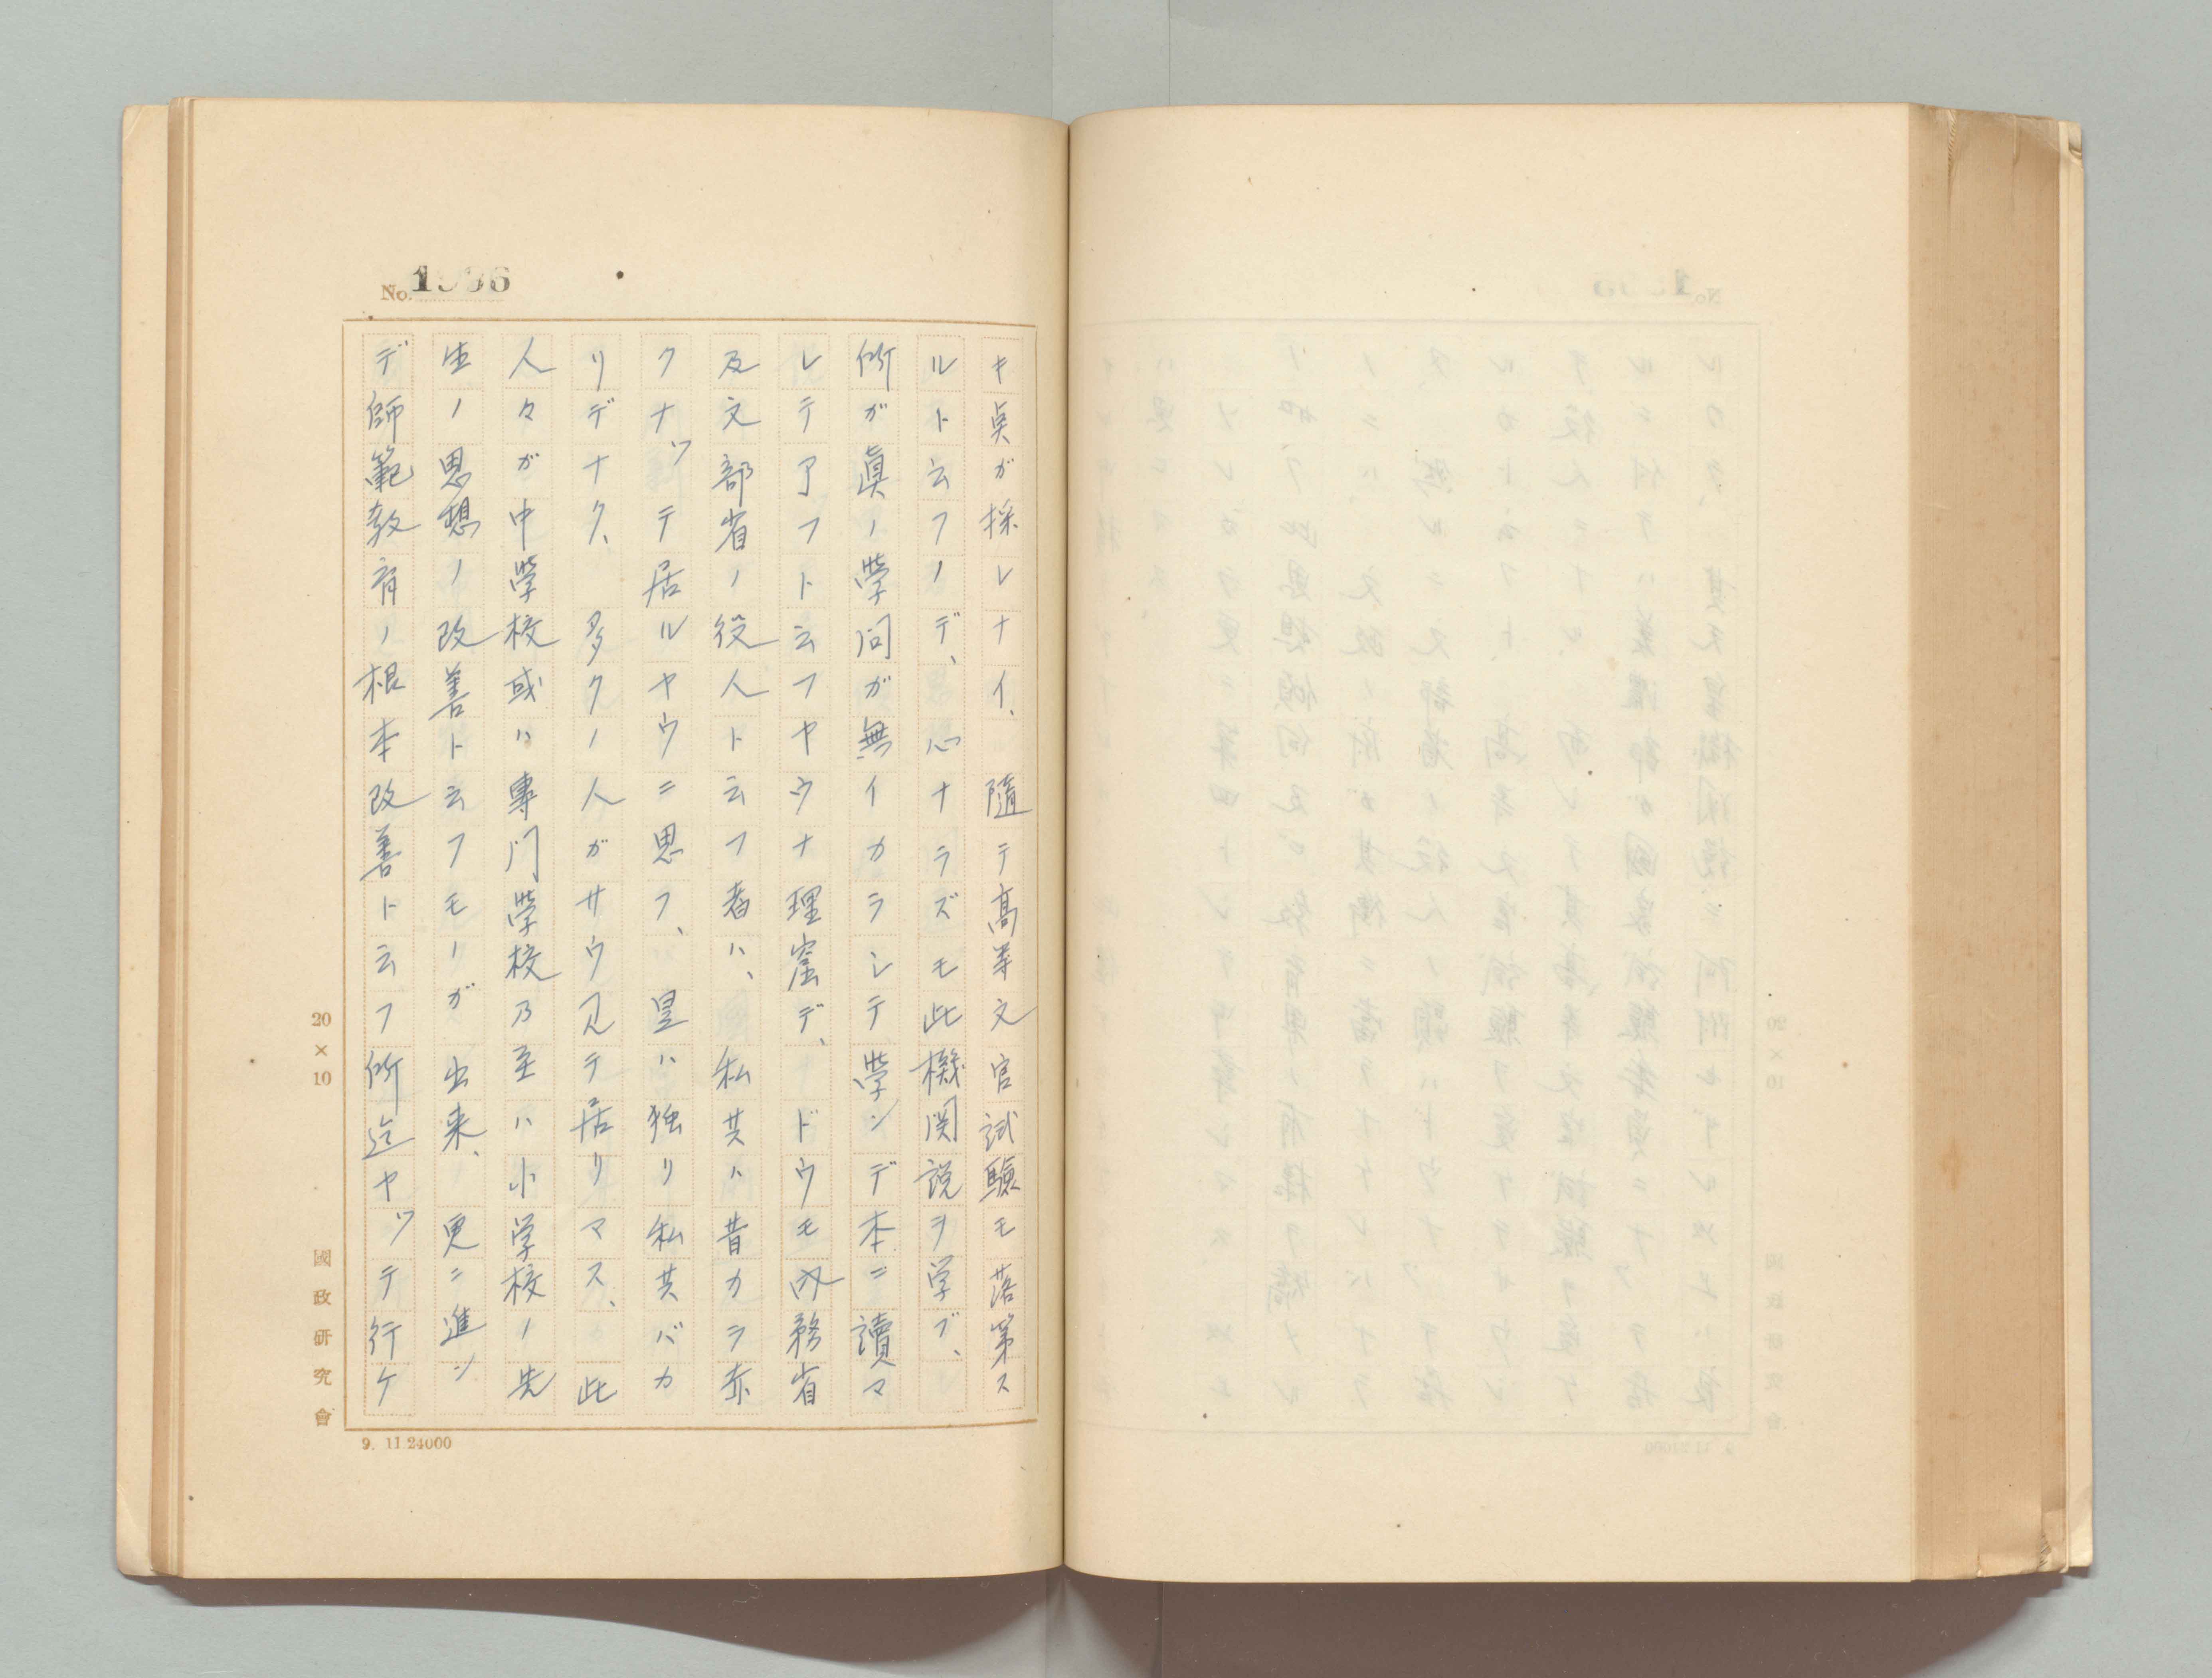 No. 1936
キ点が採レナイ、隨テ高等文官試驗モ落第ス
ルト云フノデ、心ナラズモ此機関説ヲ学ブ、
所が眞ノ學問が無イカラシテ學ンデ本ニ讀マ
レテアフト云フヤウナ理窟デ、ドウモ内務省
及文部省ノ役人ト云フ者ハ、私共ハ昔カラ赤
クナツテ居ルヤウニ思フ、是ハ独リ私共バカ
リデナク、多クノ人ガサウ見テ居リマス、此
人々が中學校或ハ專門學校乃至ハ小学校ノ先
生ノ思想ノ改善ト云フモノガ出来、更ニ進ン
デ師範教育ノ根本改善ト云フ所迄ヤツテ行ケ
20×10
國政研究會
9. 11.24000